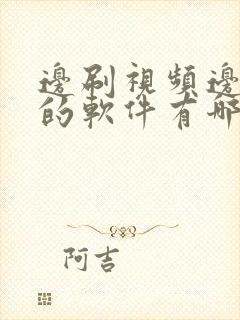 邊刷視頻邊
的軟件有哪
阿吉